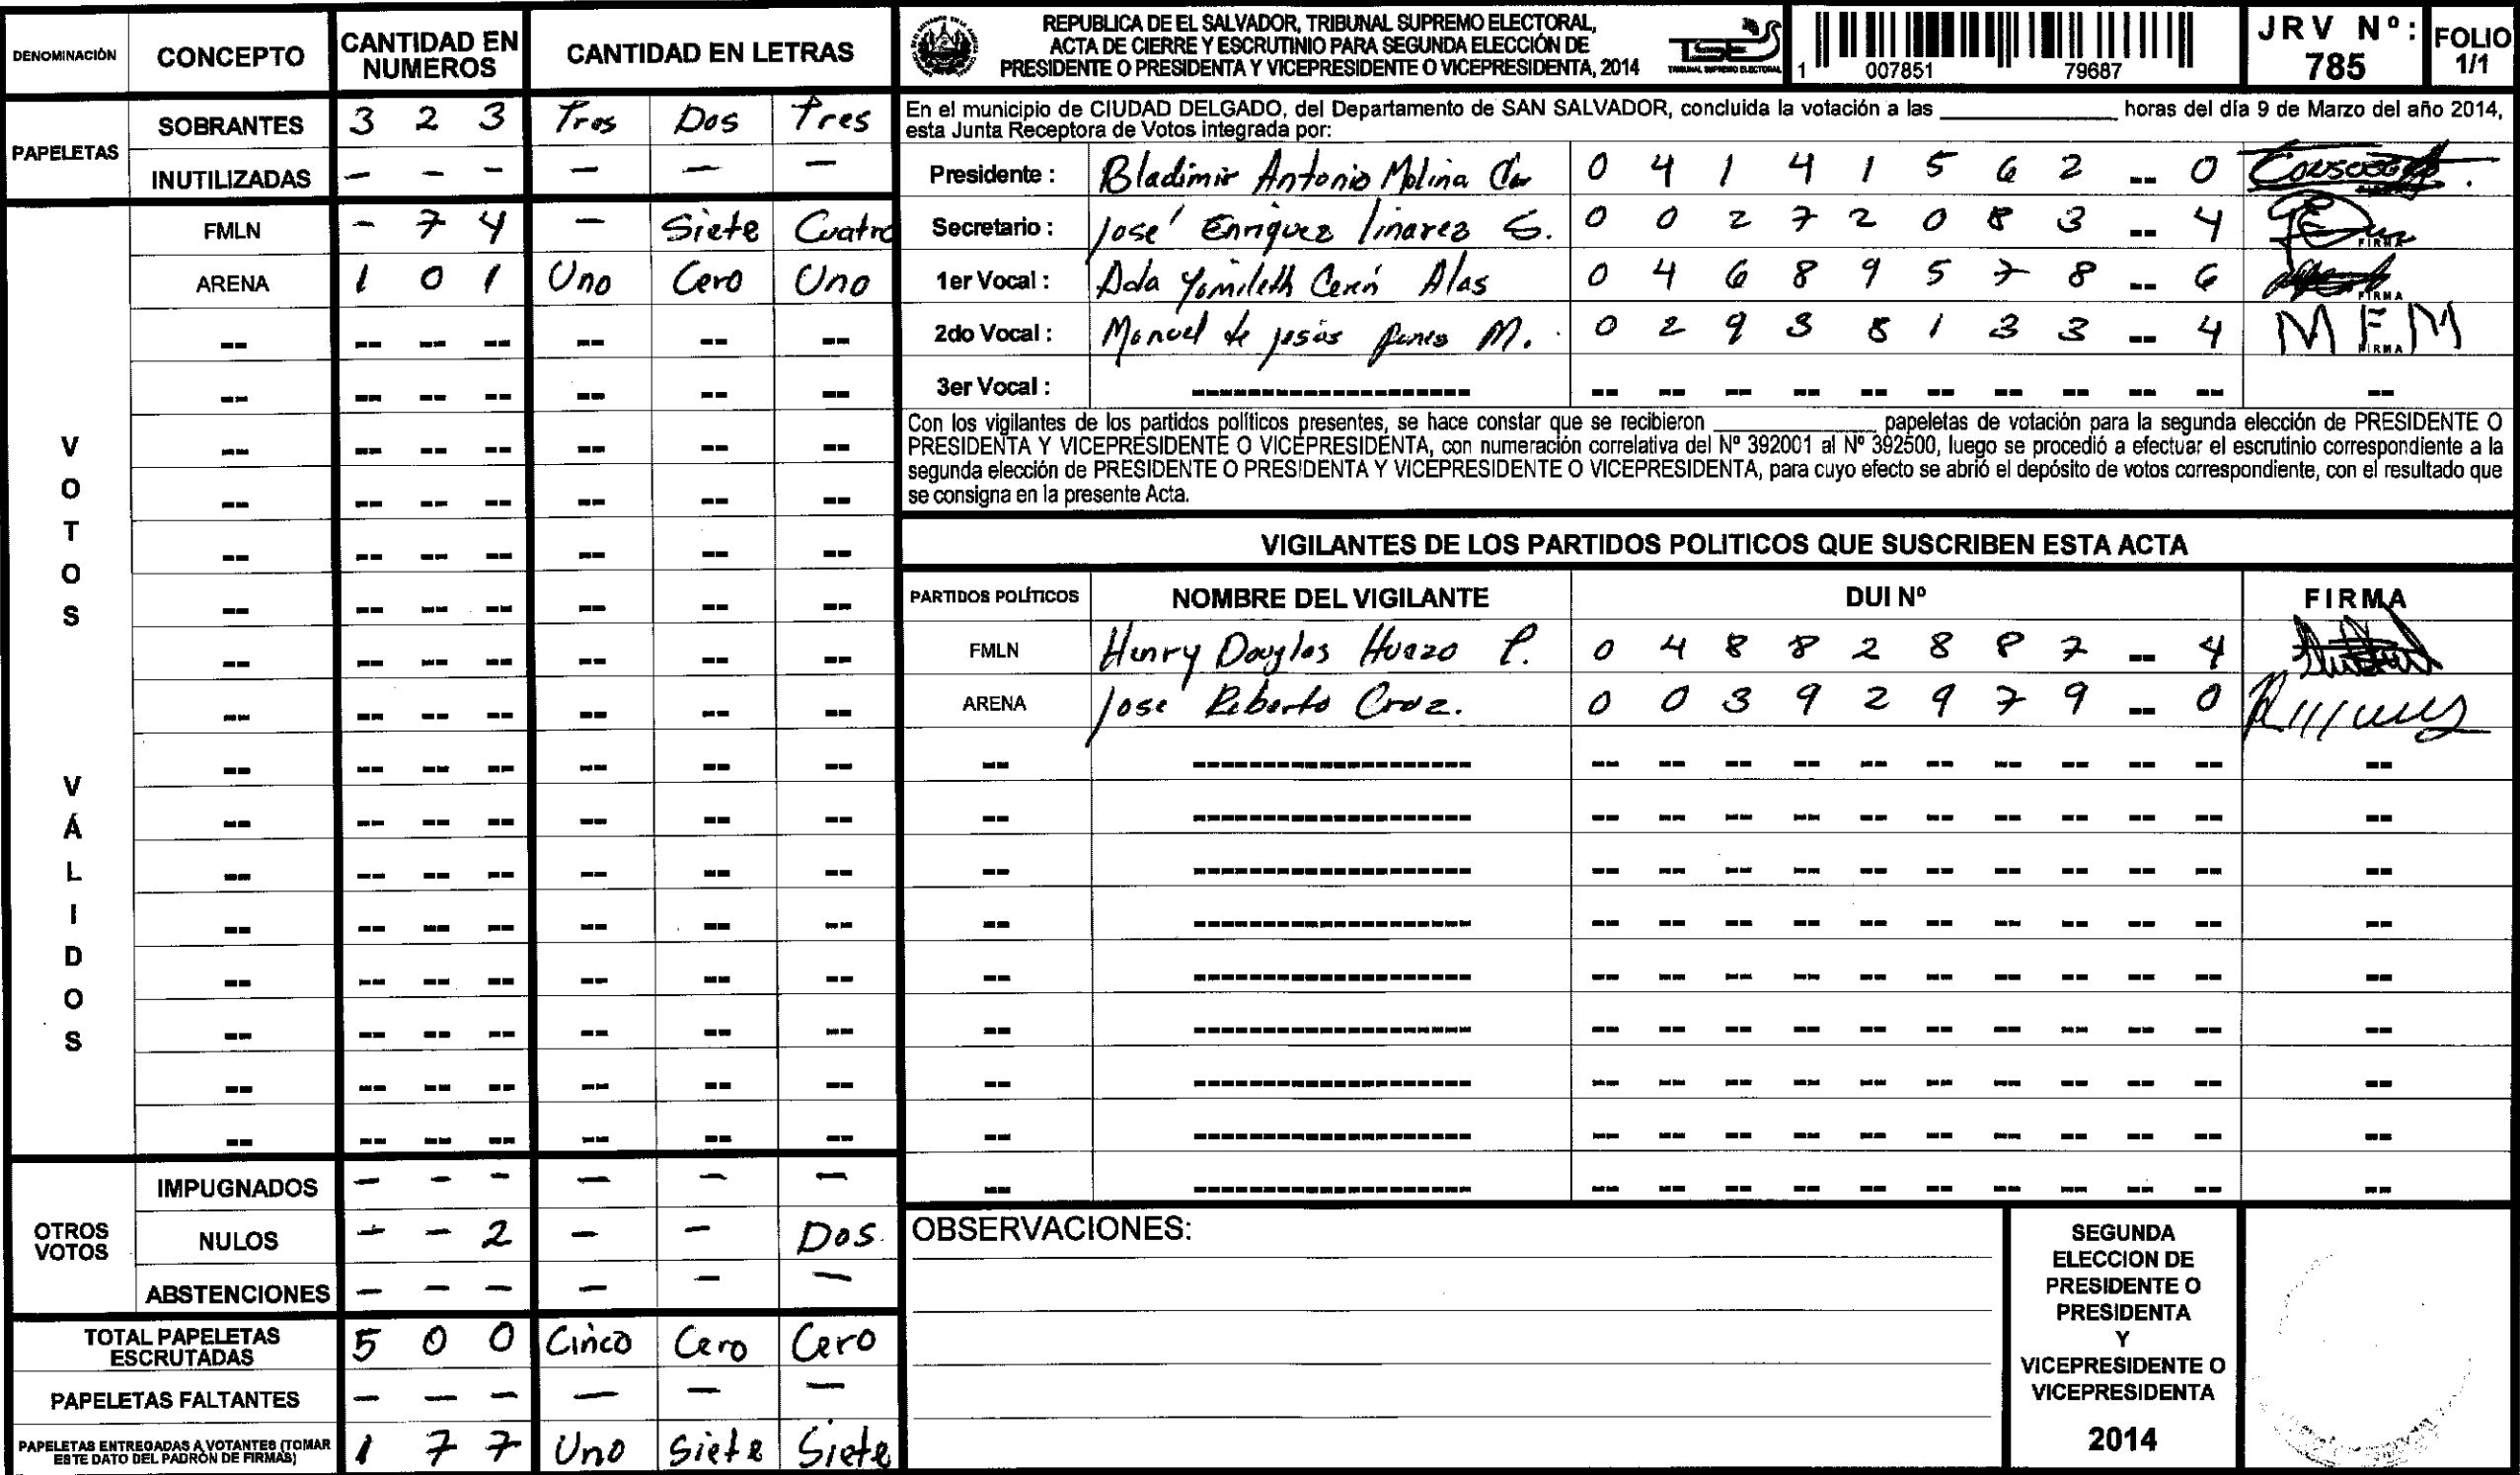 DENOMINACIÓN CONCEPTO CANTIDAD EN NUMEROS CANTIDAD EN LETRAS
PAPELETAS
SOBRANTES 3 2 3 Tres Dos Tres
INUTILIZADAS - - - - - -
VOTOS VÁLIDOS
FMLN - 7 4 - Siete Cuatro
ARENA 1 0 1 Uno Cero Uno
OTROS VOTOS
IMPUGNADOS - - - - - -
NULOS - - 2 - - Dos
ABSTENCIONES - - - - - -
TOTAL PAPELETAS ESCRUTADAS 5 0 0 Cinco Cero Cero
PAPELETAS FALTANTES - - - - - -
PAPELETAS ENTREGADAS A VOTANTES (TOMAR ESTE DATO DEL PADRÓN DE FIRMAS) 1 7 7 Uno Siete Siete
REPUBLICA DE EL SALVADOR, TRIBUNAL SUPREMO ELECTORAL,
ACTA DE CIERRE Y ESCRUTINIO PARA SEGUNDA ELECCIÓN DE
PRESIDENTE O PRESIDENTA Y VICEPRESIDENTE O VICEPRESIDENTA, 2014
TSE
TRIBUNAL SUPREMO ELECTORAL
1 007851 79687
JRV Nº: 785
FOLIO 1/1
En el municipio de CIUDAD DELGADO, del Departamento de SAN SALVADOR, concluida la votación a las ____ horas del día 9 de Marzo del año 2014,
esta Junta Receptora de Votos integrada por:
Presidente : Bladimir Antonio Molina 0 4 1 4 1 5 6 2 -- 0
Secretario : José Enriquez linarez S. 0 0 2 7 2 0 8 3 -- 4 FIRMA
1er Vocal : Ada Yamileth Cerén Alas 0 4 6 8 9 5 7 8 -- 6 FIRMA
2do Vocal : Manuel de jesús M. 0 2 9 3 8 1 3 3 -- 4 MFM FIRMA
3er Vocal :
Con los vigilantes de los partidos políticos presentes, se hace constar que se recibieron ____ papeletas de votación para la segunda elección de PRESIDENTE O
PRESIDENTA Y VICEPRESIDENTE O VICEPRESIDENTA, con numeración correlativa del Nº 392001 al Nº 392500, luego se procedió a efectuar el escrutinio correspondiente a la
segunda elección de PRESIDENTE O PRESIDENTA Y VICEPRESIDENTE O VICEPRESIDENTA, para cuyo efecto se abrió el depósito de votos correspondiente, con el resultado que
se consigna en la presente Acta.
VIGILANTES DE LOS PARTIDOS POLITICOS QUE SUSCRIBEN ESTA ACTA
PARTIDOS POLÍTICOS NOMBRE DEL VIGILANTE DUI Nº FIRMA
FMLN Henry Douglas Huezo P. 0 4 8 8 2 8 8 7 -- 4
ARENA José Roberto Cruz. 0 0 3 9 2 9 7 9 -- 0
OBSERVACIONES:
SEGUNDA
ELECCION DE
PRESIDENTE O
PRESIDENTA
Y
VICEPRESIDENTE O
VICEPRESIDENTA
2014